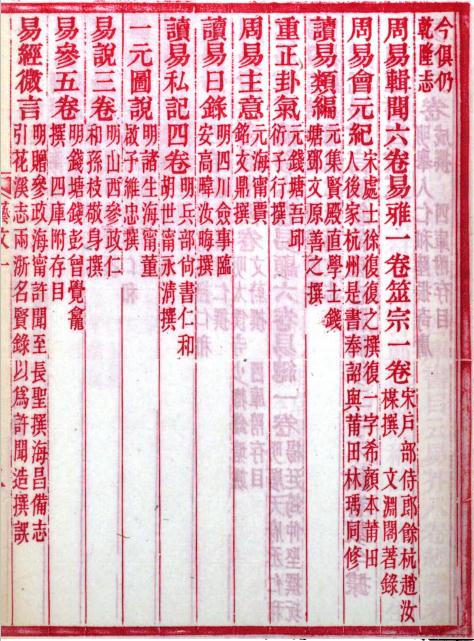 今俱仍
乾隆志
周易輯聞六卷易雅一卷筮宗一卷
宋戶部侍郎餘杭趙汝
楳撰 文淵閣著錄
周易會元紀
宋處士徐復復之撰復一字希顏本莆田
人後家杭州是書奉詔與莆田林瑀同修
讀易類編
元集賢殿直學士錢
塘鄧文原善之撰
重正卦氣
元錢塘吾邱
衍子行撰
周易主意
元海甯賈
銘文鼎撰
讀易日錄
明四川僉事臨
安高暐汝晦撰
讀易私記四卷
明兵部尙書仁和
胡世甯永淸撰
一元圖說
明諸生海甯董
啟子維忠撰
易說三卷
明山西參政仁
和孫枝敬身撰
易參五卷
明錢塘錢彭曾覺龕
撰 四庫附存目
易經微言
明贈參政海甯許聞至長聖撰海昌備志
引花溪志兩浙名賢錄以爲許聞造撰誤
藝文一